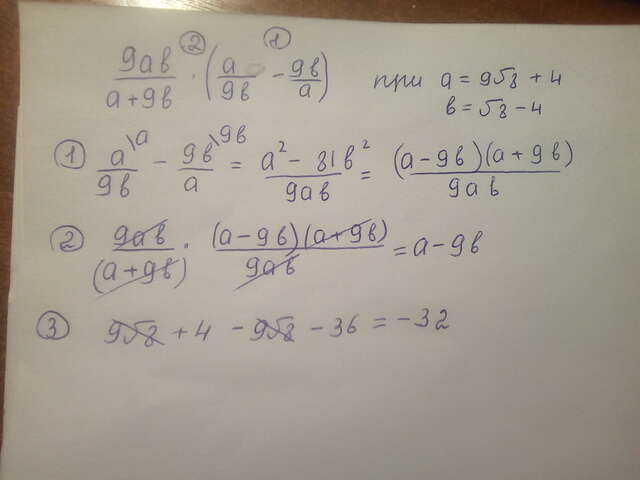 ② ①
9ab/(a+9b) · (a/9b - 9b/a) при a = 9√8 + 4
b = √8 - 4
① a\a/9b - 9b\9b/a = (a² - 81b²)/9ab = (a-9b)(a+9b)/9ab
② 9ab/(a+9b) · (a-9b)(a+9b)/9ab = a-9b
③ 9√8 + 4 - 9√8 - 36 = -32